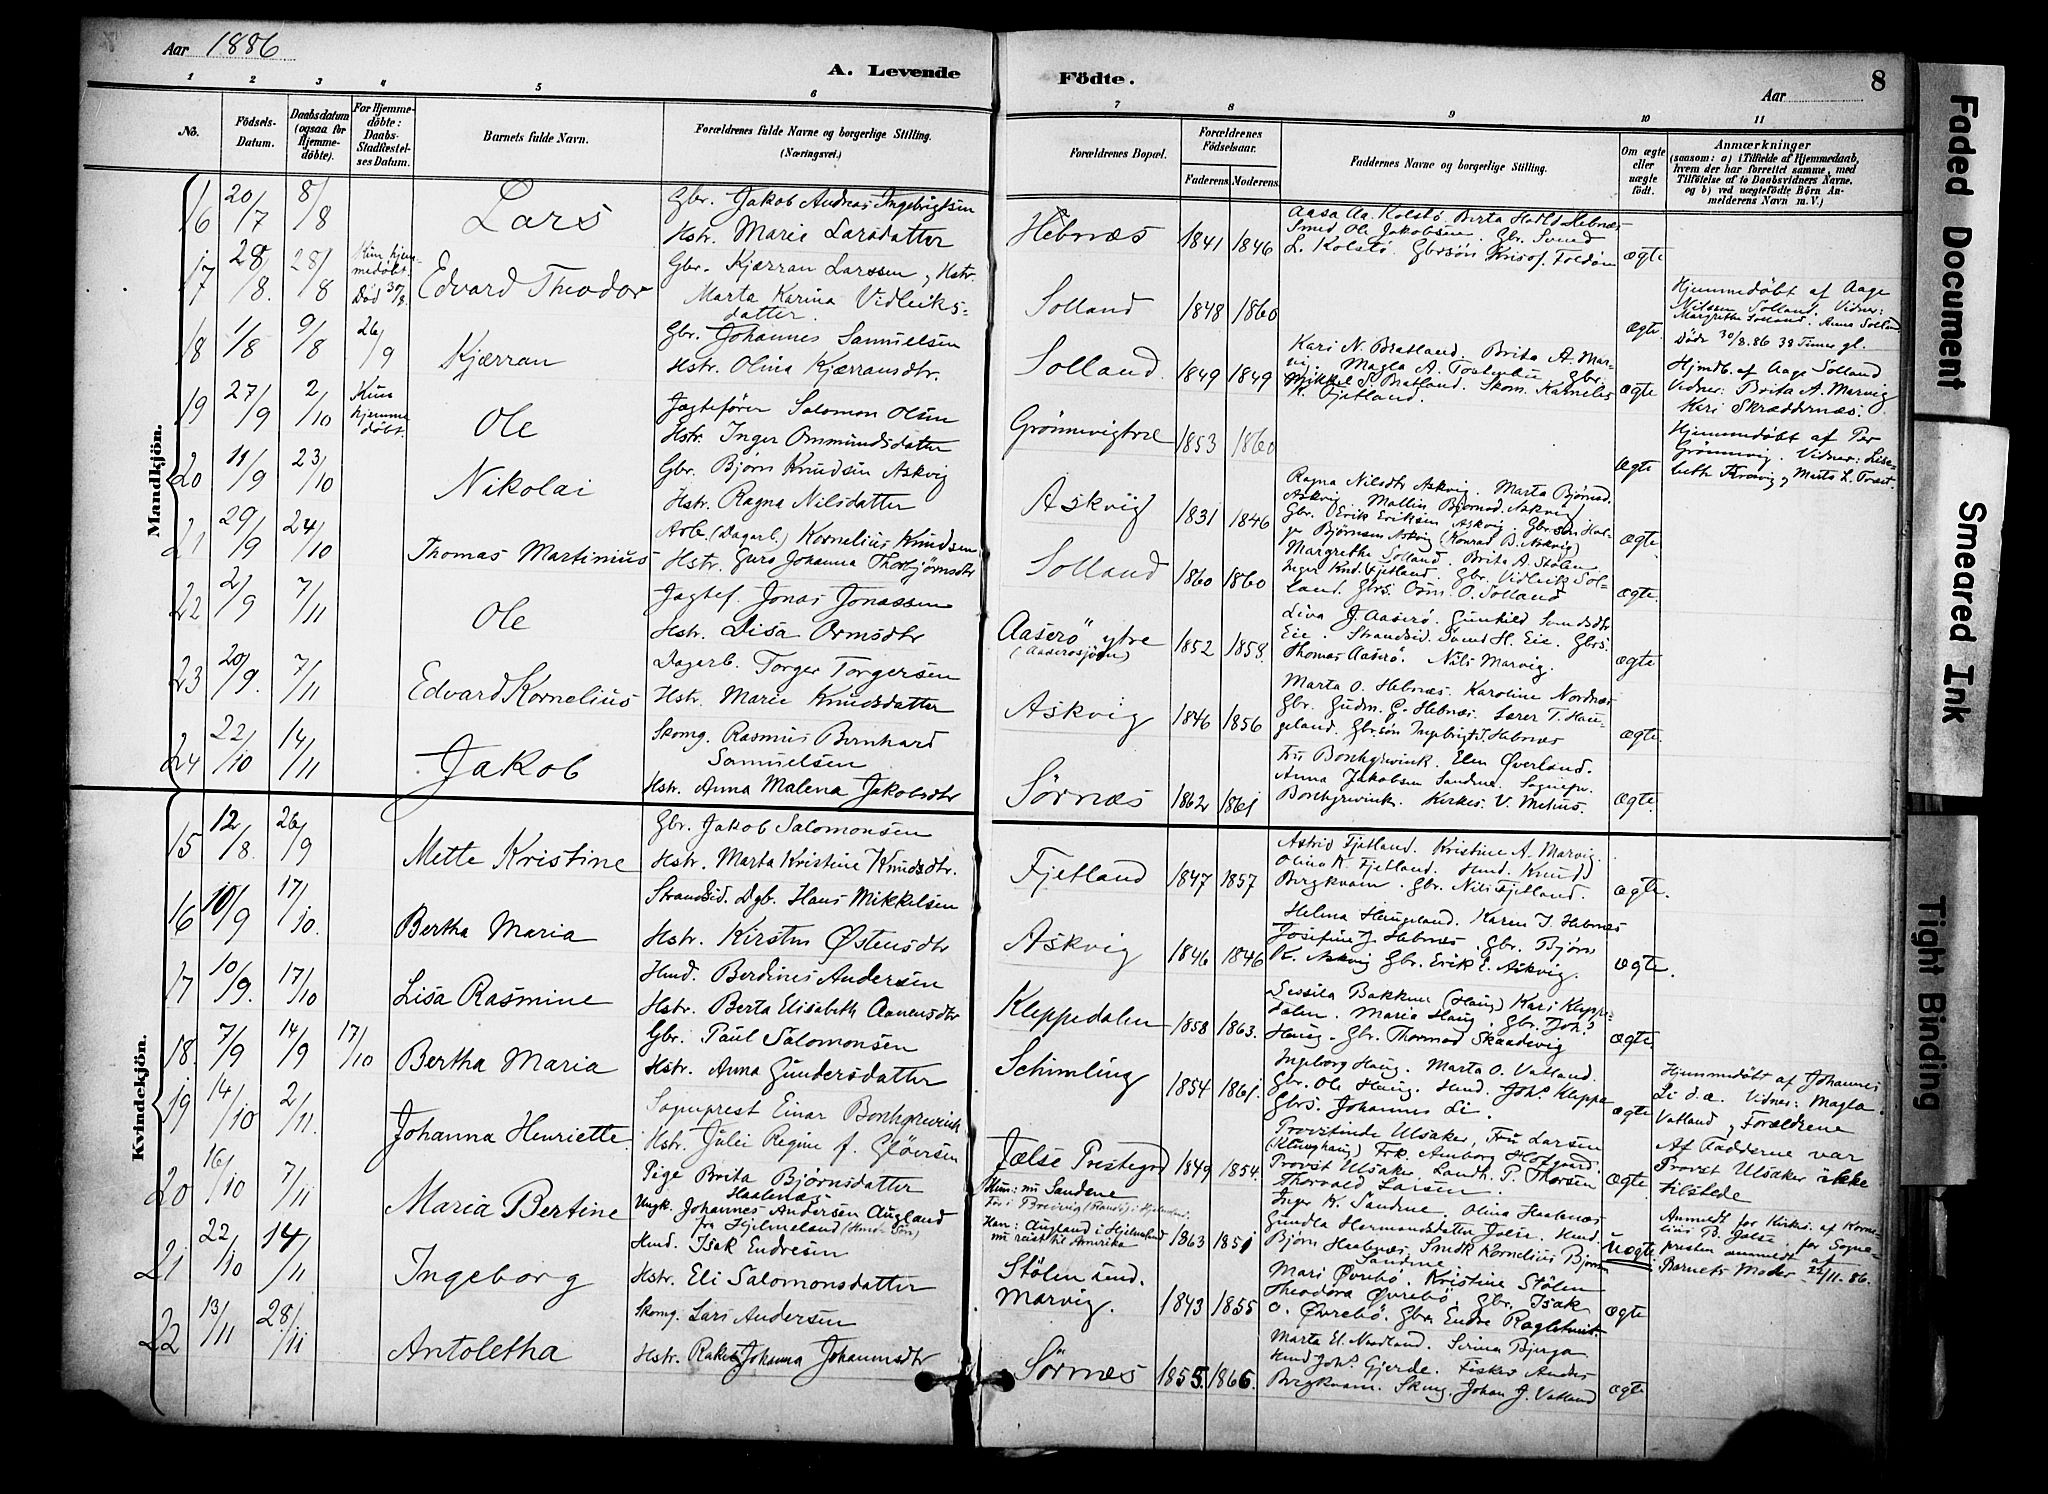 Aar 1886
A. Levende Födte.
8
Aar
1 2 3 4 5 6 7 8 9 10 11
No. Födsels-Datum. Daabsdatum (ogsaa for Hjemme-döbte). For Hjemme-döbte: Daabs-Stadfæstel-ses Datum. Barnets fulde Navn. Forældrenes fulde Navne og borgerlige Stilling. (Næringsvei.) Forældrenes Bopæl. Forældrenes Födselsaar. Faderens. Moderens. Faddernes Navne og borgerlige Stilling. Om ægte eller uægte født. Anmærkninger (saasom: a) i Tilfælde af Hjemmedaab, hvem der har forrettet samme, med Tilföielse af to Daabsvidners Navne, og b) ved uægtefödte Börn An-melderens Navn m. V.)
Mandkjön.
16 20/7 8/8 Lars
Gbr. Jakob Andreas Ingebrigtsen
Hstr. Marie Larsdatter
Hebnæs 1841 1846
Aasa Aa. Kolstö. Berta Hebnæs
Smed Ole Jakobsen. Gbr. Svend
L. Kolstö. Gbrsön Foldöen
ægte
17 28/8. 28/8 Kun hjem-medöbt. Död 30/8. Edvard Theodor
Gbr. Kjærran Larssen, Hstr.
Marta Karina Vidleiks-
datter.
Solland 1848 1860 ægte.
Hjemmedöbt af Aage
Nilsen Solland. Vidner:
Margrethe Solland, Anna Solland
Döde 30/8.86 38 Timer gl.
18 1/8 9/8 26/9 Kjærran
Gbr. Johannes Samuelsen
Hstr. Olina Kjærransdtr.
Solland. 1849 1849
Kari N. Bratland. Brita A. Mar-
vig. Magla A. Gbr.
Mikkel S. Bratland. Skom. Kornelius
K. Fjetland.
ægte
Hjmdb. af Aage Solland
Vidner: Brita A. Marvig
Kari Skræddernæs.
19 27/9 2/10 Kun hjemme döbt. Ole
Jagtefører Salomon Olsen
Hstr. Inger Ommundsdatter
Grönnevigtræ 1853 1860 ægte
Hjemmedöbt af Per
Grönnevig. Vidner: Lise-
beth
20 11/9 23/10 Nikolai
Gbr. Björn Knudsen Askvig
Hstr. Ragna Nilsdatter
Askvig 1831 1846
Ragna Nilsdtr Askvig. Marta Björnsd.
Askvig. Mallin Björnsd. Askvig
Gbr. Erik Eriksen Askvig. Gbrsön Hel-
ge Björnsen Askvig (Konrad B. Askvig)
ægte.
21 29/9 24/10 Thomas Martinius
Arb. (Dagarb.) Kornelius Knudsen
Hstr. Guro Johanna Thorbjörnsdtr
Solland 1860 1860
Margrethe Solland. Brita A. Stölen.
Inger Knd. Fjetland. Gbr. Vidleik Sol-
land. Gbrs. Orm. O. Solland
ægte.
22 2/9 7/11 Ole
Jagtef. Jonas Jonassen
Hstr. Lisa Ormsdtr
Aaserö ytre 1852 1858.
Liva J. Aaserö. Gunhild Svendsdtr
Eie. Strandsid. Svend H. Eie. Gbrs.
Thomas Aaserö. Nils Marvig.
ægte
23 20/9. 7/11 Edvard Kornelius
Dagarb. Torger Torgersen
Hstr. Marie Knudsdatter
Askvig 1846 1856
Marta O. Hebnæs. Karoline Nordnæs
Gbr. Gudm. G. Hebnæs. Lærer T. Hau-
geland. Gbrsön Ingebrigt J. Hebnæs
ægte.
24 22/10 14/11 Jakob
Skomg. Rasmus Bernhard
Samuelsen
Hstr. Anna Malena Jakobsdtr
Sörnæs 1862 1861
Fru Bonhgrewink. Elen Överland.
Anna Jakobsen Sandene. Sognepr.
Bonhgrewink. Kirkes. V. Mehus.
ægte.
Kvindekjön.
15 12/8. 26/9 Mette Kristine
Gbr. Jakob Salomonsen
Hstr. Marta Kristine Knudsdtr.
Fjetland 1847 1857
Astrid Fjetland. Kristine A. Marvig.
Olina K. Fjetland. Hmd. Knud
Bergkvam. Gbr. Nils Fjetland.
ægte.
16 10/9 17/10. Bertha Maria
Strandsid. Dgb. Hans Mikkelsen
Hstr. Kirsten Östensdtr
Askvig 1846 1846
Helena Haugeland. Karen I. Hebnæs
Josefine J. Hebnæs. Gbr. Björn
K. Askvig Gbr. Erik E. Askvig.
ægte.
17 10/9. 17/10 Lisa Rasmine
Hmd. Berdines Andersen
Hstr. Berta Elisabeth Aanensdtr
Kleppedalen 1858 1863.
Sessila Bakken (Haug) Kari Kleppe-
dalen. Maria Haug. Gbr. Johs
Haug. Gbr. Thormod Skaadevig
ægte.
18. 7/9 14/9 17/10 Bertha Maria
Gbr. Paul Salomonsen
Hstr. Anna Gundersdatter
Schimling 1854 1861.
Ingeborg Haug. Marta O. Vatland.
Gbr. Ole Haug. Hmd. Johs Kleppa
Gbrs. Johannes Li.
ægte
Hjemmedöbt af Johannes
Li d.æ. Vidner: Magla
Vatland, Forældrene
19 14/10 2/11. Johanna Henriette.
Sogneprest Einar Bonhgrewink
Hstr. Julie Regine f. Glöersen
Jælse Prestegrd 1849 1854.
Provstinde Ulsaker, Fru Larsen
(Klunghaug) Frk. Amborg Hofgaard.
Provst Ulsaker. Landh. P. Thorsen
Thorvald Larsen.
ægte.
Af Fadderne var
Provst Ulsaker ikke
tilstede
20 16/10 7/11 Maria Bertine
Pige Brita Björnsdatter
Haalenæs
Ungk. Johannes Andersen Augland
fra Hjelmeland (Hmds Sön)
Hun: nu Sandene
Han: Augland i Hjelmeland
nu reist til Amerika
1863 1851
Inger K. Sandene. Olina Haalenæs
Gundla Hermansdatter Jælse. Hmd.
Björn Haalenæs. Smed Kornelius Björnsen
Sandene
uægte
Anmeldt for Kirkes. af Korne-
lius B. Jælse. for Sogne-
presten anmeldt af
Barnets Moder 22/11.86.
21 22/10 14/11 Ingeborg
Hmd. Isak Endresen
Hstr. Eli Salomonsdatter
Stölen und. Marvig. 1843 1855
Mari Övrebö. Kristine Stölen
Theodora Övrebö. Gbr. Isak
O. Övrebö. Gbr. Endre
ægte
22 13/11 28./11 Antoletha
Skomg. Lars Andersen
Hstr. Rakel Johanna Johannsdtr
Sörnæs 1855. 1866.
Marta El. Nordland. Serina Bjerga
Hmd Johs Gjerde. Fisker Anders
Bergkvam. Skmg. Johan J. Vatland
ægte
Faded Document
Smeared Ink
Tight Binding